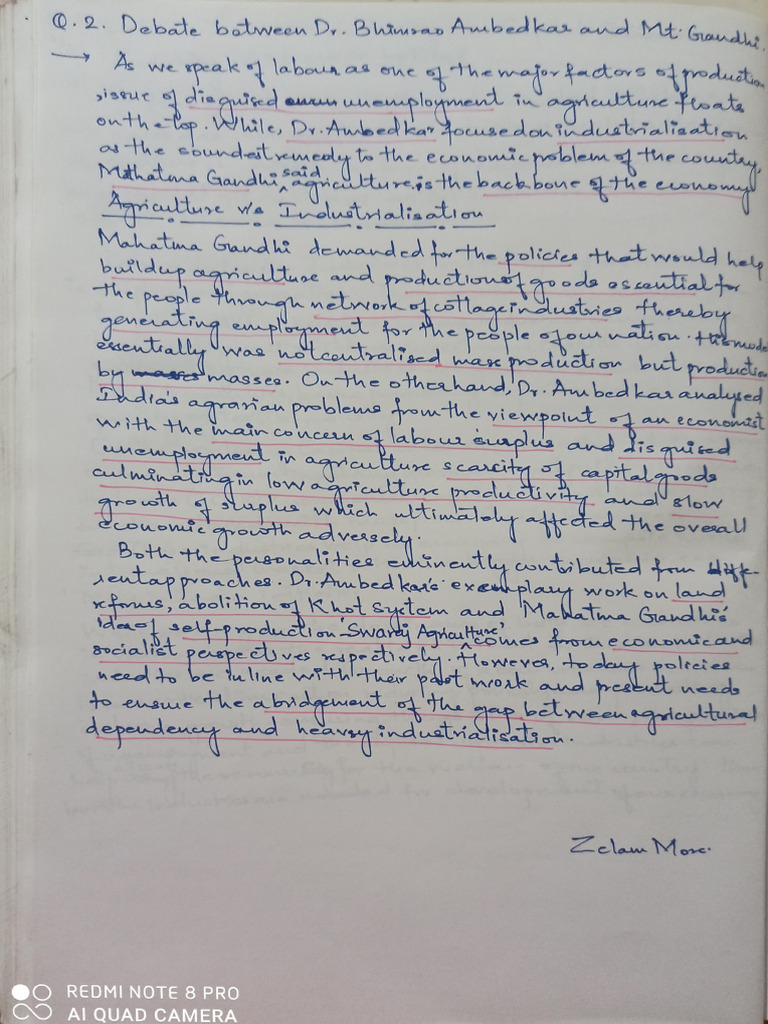 Q.2. Debate between Dr. Bhimrao Ambedkar and Mt. Gandhi.
→ As we speak of labour as one of the major factors of production
, issue of disguised unemployment in agriculture floats
on the top. While, Dr. Ambedkar focused on industrialisation
as the soundest remedy to the economic problem of the country,
Mahatma Gandhi said agriculture is the backbone of the economy
Agriculture v/s Industrialisation
Mahatma Gandhi demanded for the policies that would help
buildup agriculture and production of goods essential for
the people through network of cottage industries thereby
generating employment for the people of our nation. His mode
essentially was not centralised mass production but production
by masses. On the otherhand, Dr. Ambedkar analysed
India's agrarian problems from the viewpoint of an economist
with the main concern of labour surplus and disguised
unemployment in agriculture scarcity of capital goods
culminating in low agriculture productivity and slow
growth of surplus which ultimately affected the overall
economic growth adversely.
Both the personalities eminently contributed from diff-
rent approaches. Dr. Ambedkar's exemplary work on land
reforms, abolition of Khot System and Mahatma Gandhi's
idea of self-production 'Swaraj Agriculture' comes from economic and
socialist perspectives respectively. However, today policies
need to be inline with their past work and present needs
to ensure the abridgement of the gap between agricultural
dependency and heavy industrialisation.
Zelam More.
REDMI NOTE 8 PRO
AI QUAD CAMERA